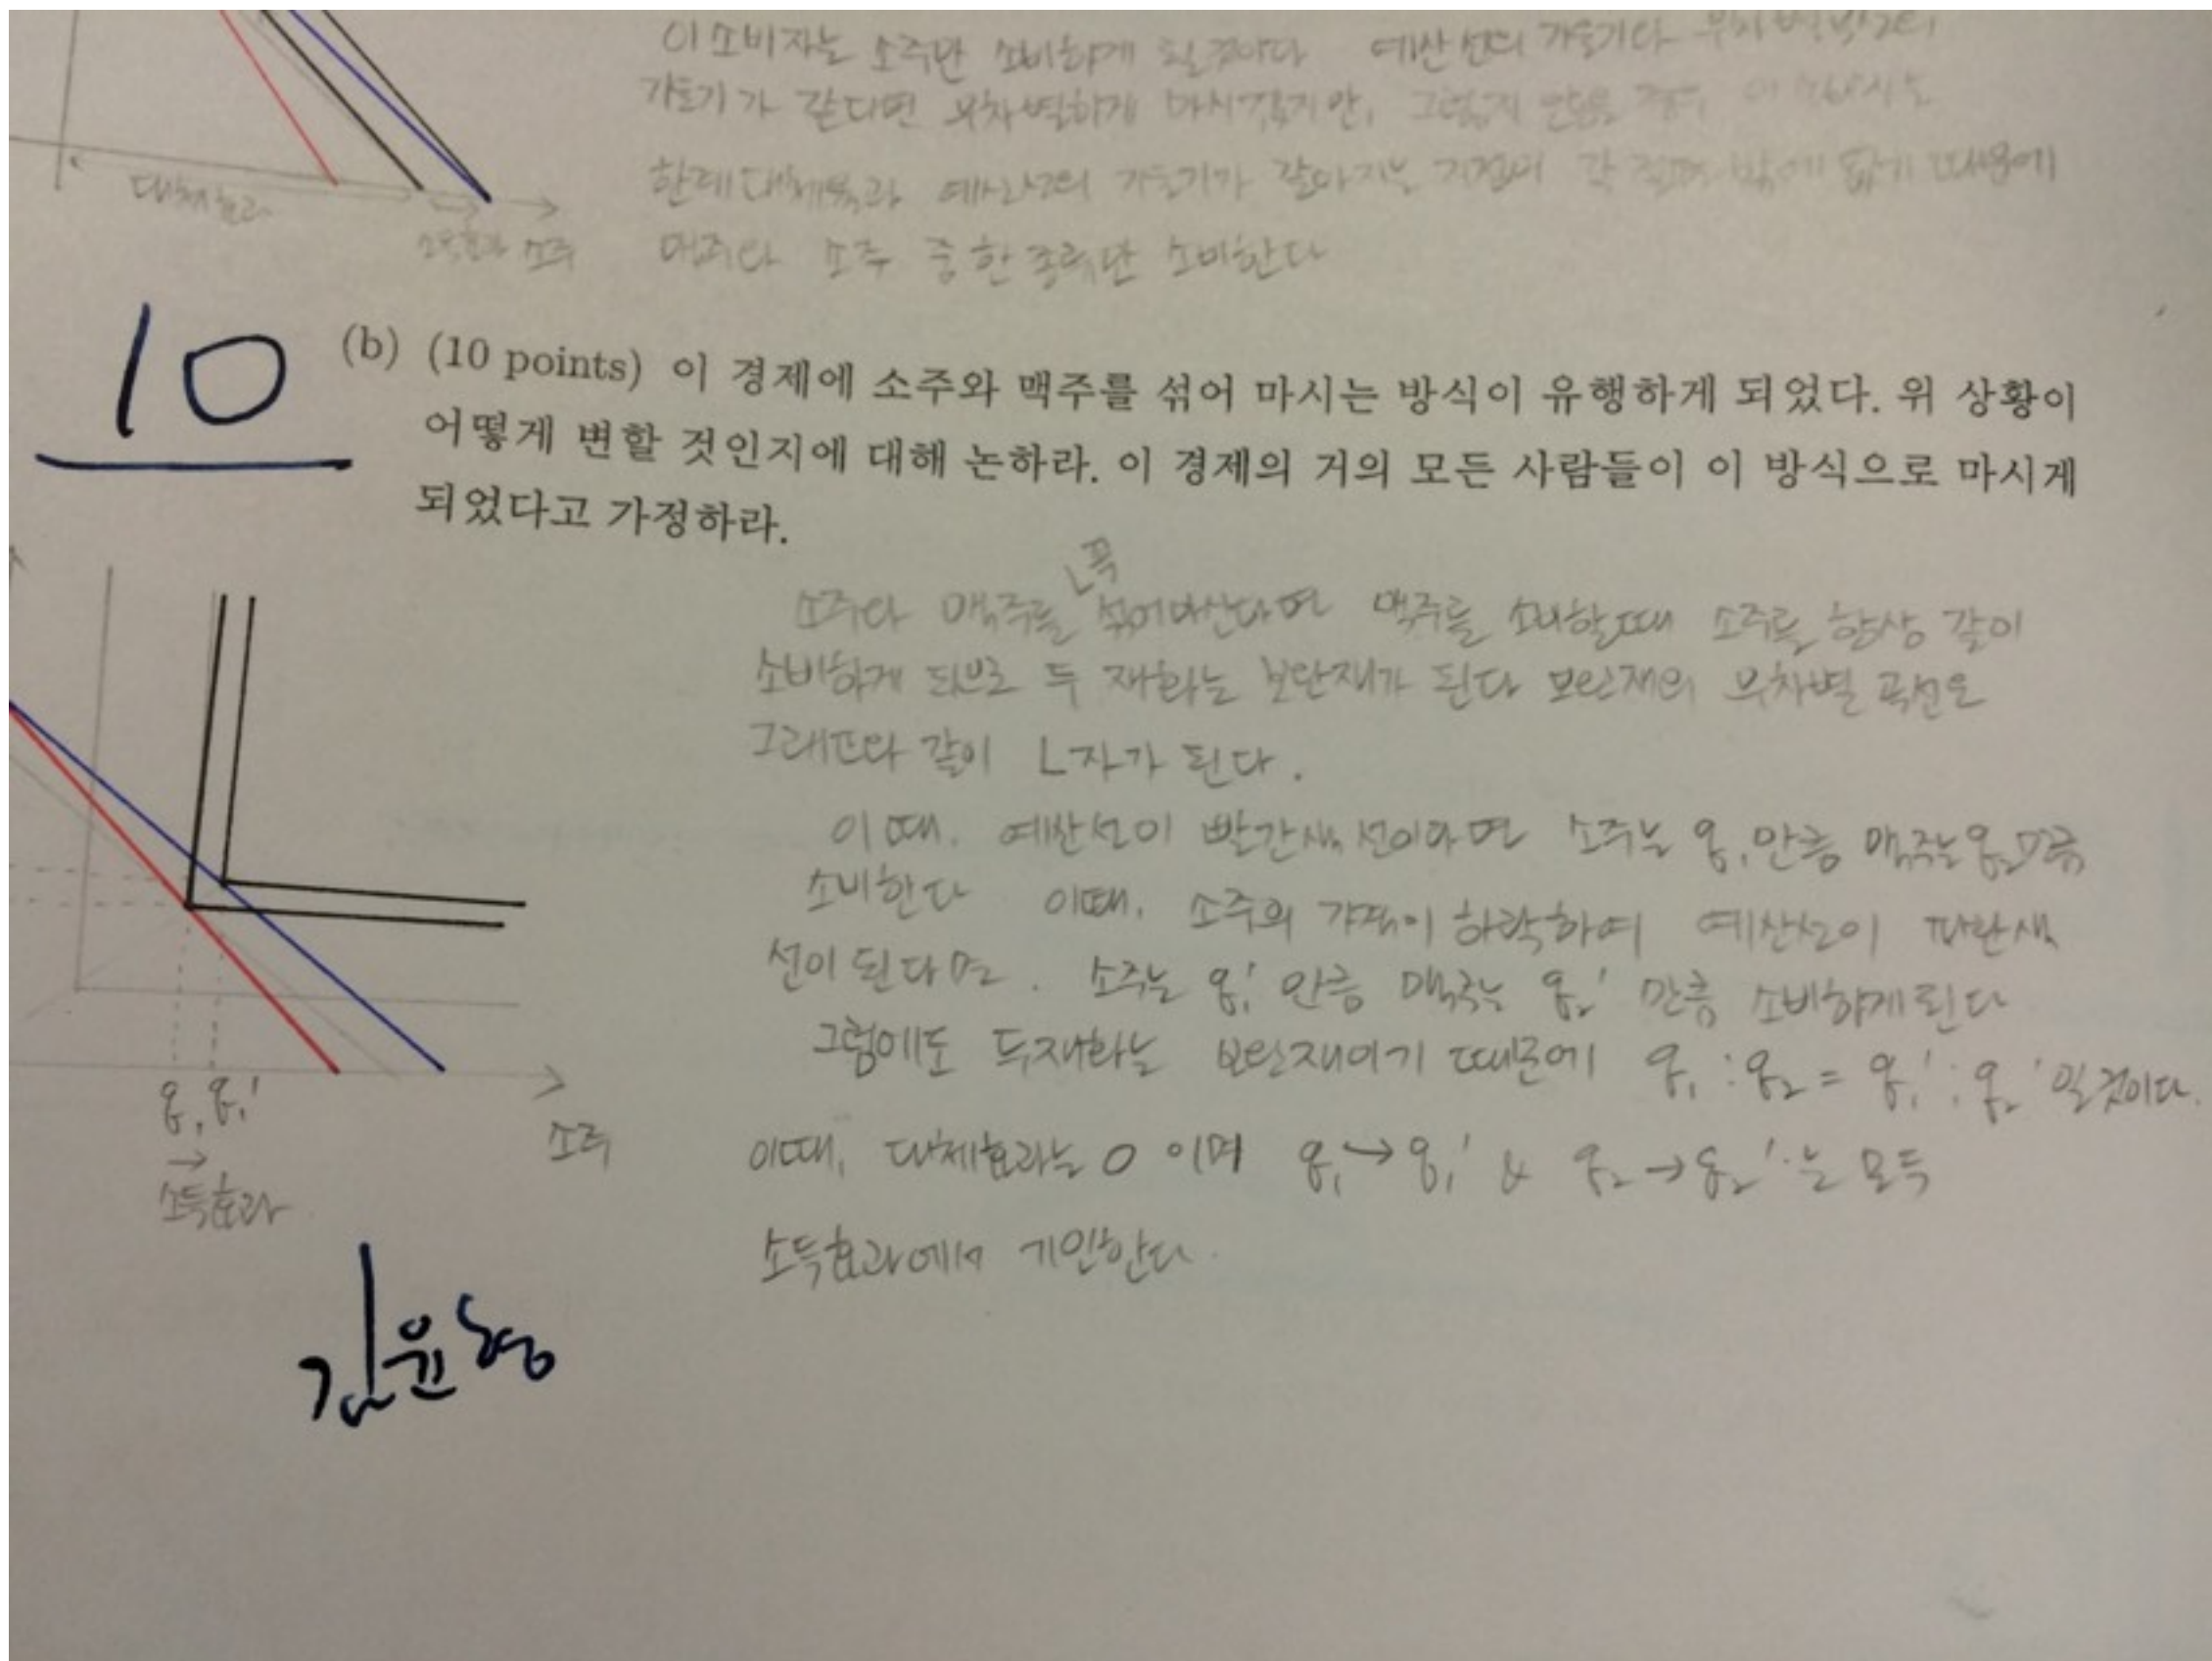 이 소비자는 소주만 소비하게 될 것이다 예산선의 기울기와
기울기가 같다면 무차별하게 마시겠지만, 그렇지 않을 경우
한계대체율과 예산선의 기울기가 같아지는 지점이 각 절편 밖에 없기 때문에
대체효과
소득효과 소주
맥주나 소주 중 한 종류만 소비한다
10
(b) (10 points) 이 경제에 소주와 맥주를 섞어 마시는 방식이 유행하게 되었다. 위 상황이
어떻게 변할 것인지에 대해 논하라. 이 경제의 거의 모든 사람들이 이 방식으로 마시게
되었다고 가정하라.
꼭
소주와 맥주를 섞어마신다면 맥주를 소비할때 소주를 항상 같이
소비하게 되므로 두 재화는 보완재가 된다 보완재의 무차별 곡선은
그래프와 같이 L자가 된다.
이때, 예산선이 빨간색 선이라면 소주는 q₁만큼 맥주는 q₂만큼
소비한다 이때, 소주의 가격이 하락하여 예산선이 파란색
선이 된다면, 소주는 q₁' 만큼 맥주는 q₂' 만큼 소비하게 된다
그럼에도 두재화는 보완재이기 때문에 q₁:q₂ = q₁':q₂' 일 것이다.
q₁ q₁'
소주
이때, 대체효과는 0 이며 q₁→q₁' & q₂→q₂'는 모두
→
소득효과
소득효과에서 기인한다.
김윤형